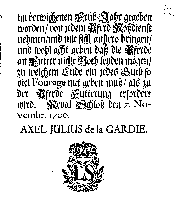 im verwichenen Friß-Jahr gegeben
worden / von jedem Pferd Roßdienst
nehmen und mit sich anhero bringen /
und wohl acht geben daß die Pferde
an Futter nicht Noht leyden mögen /
zu welchem Ende ein jedes Guth so
viel Fourage mit geben muß / als zu
der Pferde Futterung erfordert
wird. Reval Schloß den 7. No-
vembr. 1700.
AXEL JULIUS de la GARDIE.
LS